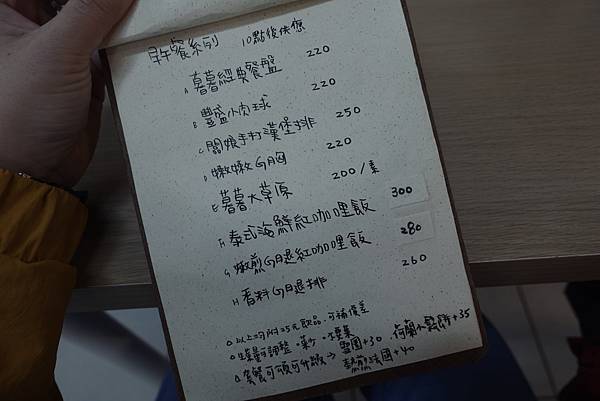 早午餐系列 10點後供應
A 暮暮經典餐盤 220
B 豐盛小肉球 220
C 闆娘手打漢堡排 250
D 嫩嫩G胸 220
E 暮暮大草原 200/素
F 泰式海鮮紅咖哩飯 300
G 嫩煎G腿紅咖哩飯 280
H 香料G腿排 260
以上均附25元飲品,可補價差
套餐可頌可升級→ 雪圈+30 荷蘭小鬆餅+35
熱煎法國+40